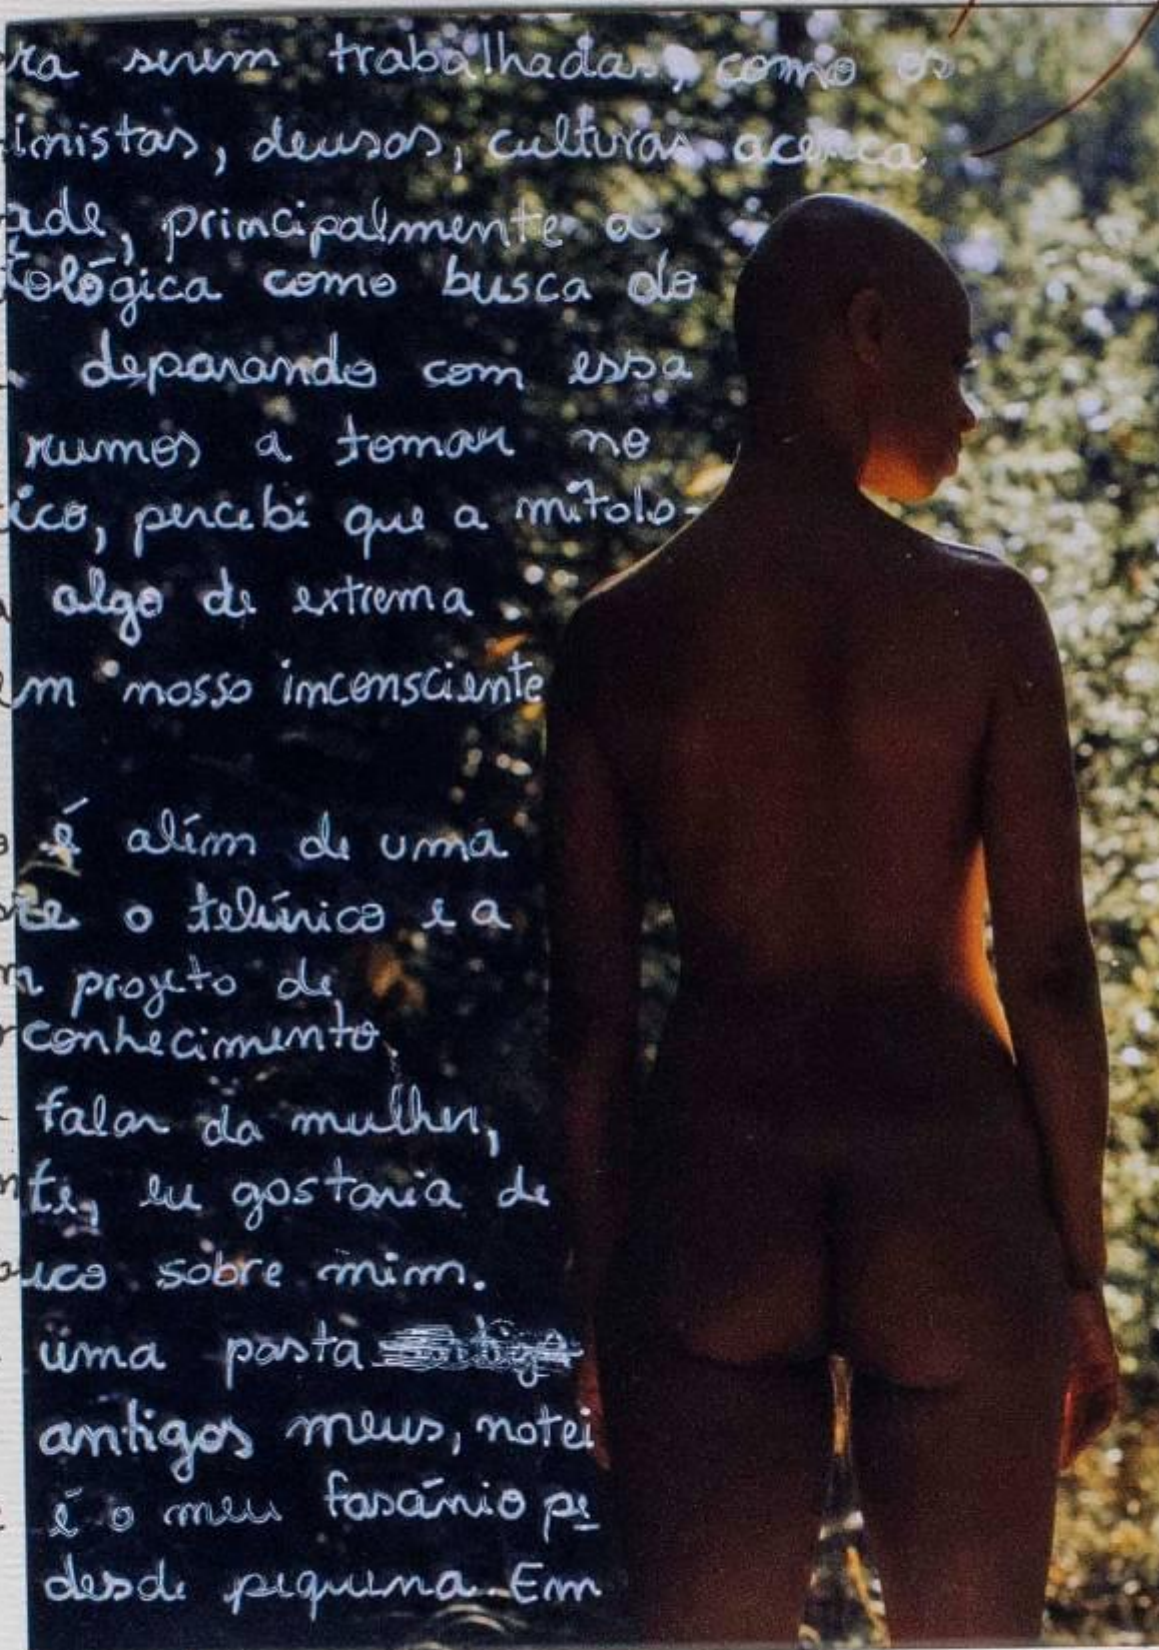 ra serem trabalhadas, como os
imistas, deusas, culturas acerca
ade, principalmente a
tológica como busca do
deparando com essa
rumos a tomar no
ico, percebi que a mitolo-
algo de extrema
em nosso inconsciente
é além de uma
o telúrico e a
projeto de
conhecimento.
falar da mulher,
nte, eu gostaria de
ouco sobre mim.
uma pasta
antigos meus, notei
é o meu fascínio pe
desde pequena. Em